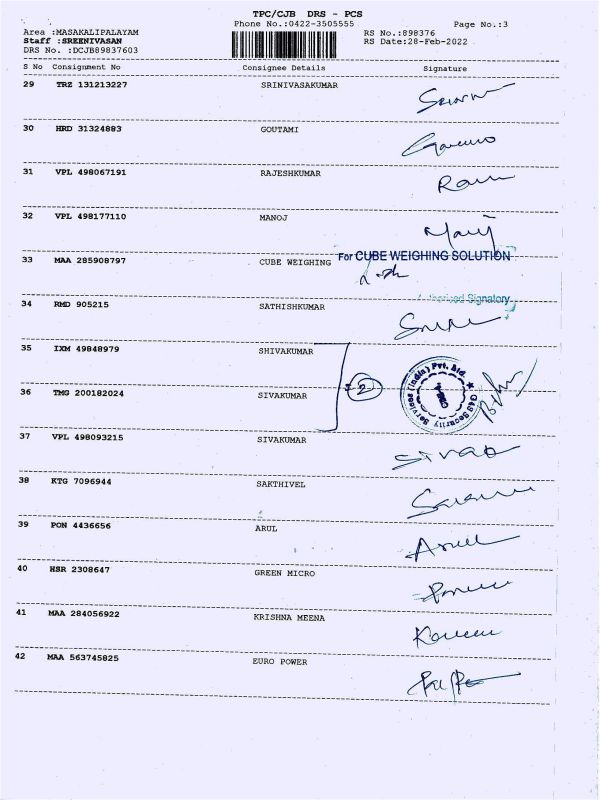 TPC/CJB DRS - PCS
Phone No.:0422-3505555 Page No.:3
Area :MASAKALIPALAYAM RS No.:898376
Staff :SREENIVASAN RS Date:28-Feb-2022
DRS No. :DCJB89837603
S No Consignment No Consignee Details Signature
29 TRZ 131213227 SRINIVASAKUMAR
30 HRD 31324883 GOUTAMI
31 VPL 498067191 RAJESHKUMAR
32 VPL 498177110 MANOJ Manoj
For CUBE WEIGHING SOLUTION
33 MAA 285908797 CUBE WEIGHING
Authorised Signatory
34 RMD 905215 SATHISHKUMAR
35 IXM 49848979 SHIVAKUMAR
2
G4S Security Services (India) Pvt. Ltd.
36 TMG 200182024 SIVAKUMAR
37 VPL 498093215 SIVAKUMAR
38 KTG 7096944 SAKTHIVEL
39 PON 4436656 ARUL Arul
40 HSR 2308647 GREEN MICRO
41 MAA 284056922 KRISHNA MEENA
42 MAA 563745825 EURO POWER